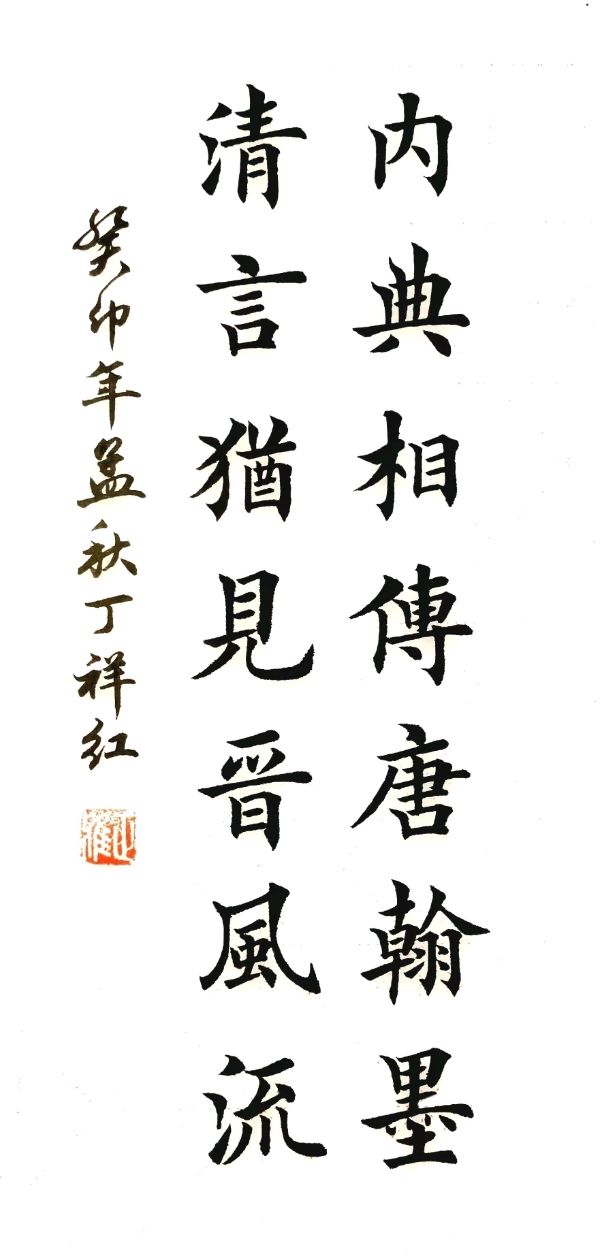 内典相傳唐翰墨
清言猶見晉風流
癸卯年孟秋丁祥红